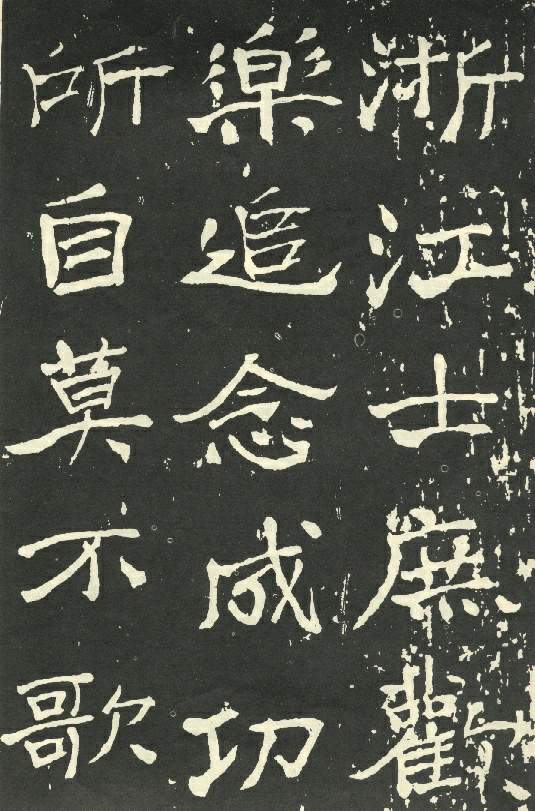 浙江士庶歡
樂追念成功
所自莫不歌